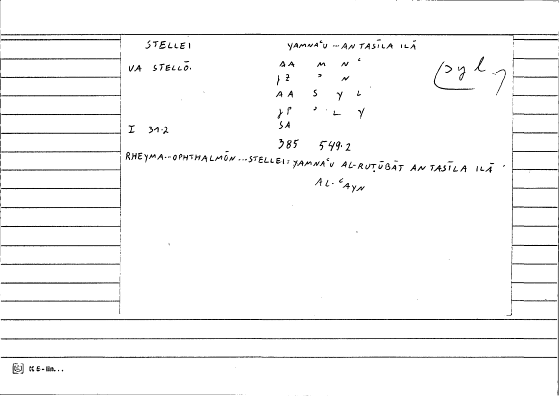 STELLEI YAMNAʿU ... AN TASĪLA ILĀ
VA STELLŌ. AA M N ʿ
JZ ʾ N
AA S Y L
JP ʾ L Y
I 31.2 SA
385 549.2
RHEYMA...OPHTHALMŌN...STELLEI: YAMNAʿU AL-RUṬŪBĀT AN TASĪLA ILĀ
AL-ʿAYN
syl